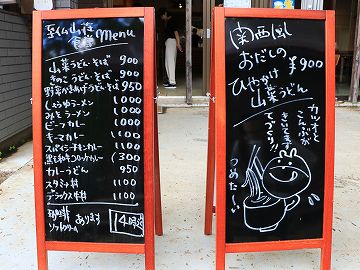 食堂 Menu
山菜うどん・そば 900
きのこうどん・そば 900
野菜かきあげうどん・そば 950
しょうゆラーメン 1,000
みそラーメン 1,000
ビーフカレー 1,000
キーマカレー 1,100
スパイシーチキンカレー 1100
黒毛和牛コロッケカレー 1300
カレーうどん 950
スタミナ丼 1100
デラックス牛丼 1100
珈琲 あります
ソフトクリーム
関西風
おだしの
ひやかけ
山菜うどん
¥900
カツオと
こんぶが
きいてます
つめた〜い